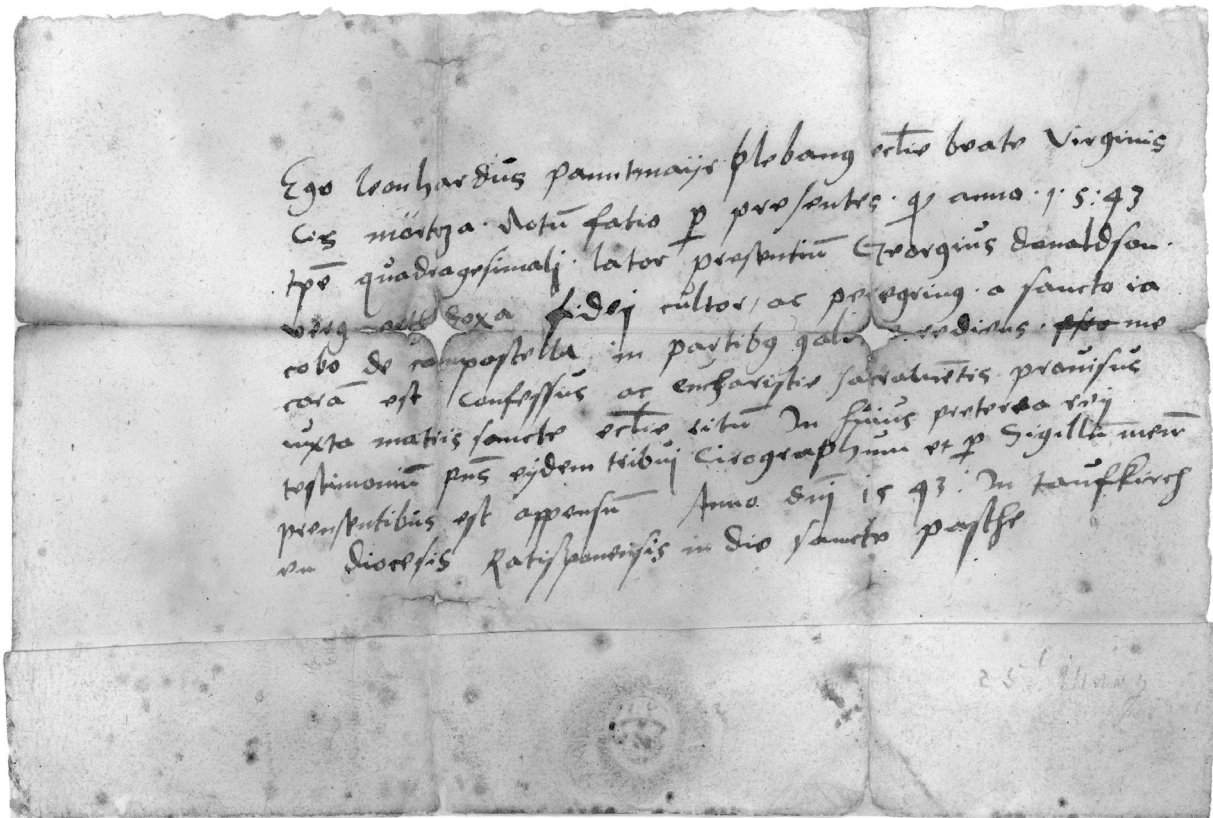 Ego leonhardus panntmayr plebanus ecclie beate Virginis
Cis mörtza. Notu fatio p presentes. q anno. 1.5.43
tpe quadragesimalj. lator presentiu Georgius donaldson.
verus orthodoxa fidej cultor, ac peregrinus. a sancto ia
cobo de compostella in partibus rediens. me
cora est Confessus ac eucharistie sacramentis prouisus
iuxta matris sancte ecclie ritu In huius preterea rej
testimoniu pns eydem tribuj Cirographum et p Sigillu meu
prensentibus est appensu Anno dnj 1543. In taufkirch
en diocesis Ratisponensis in die sancte pasche